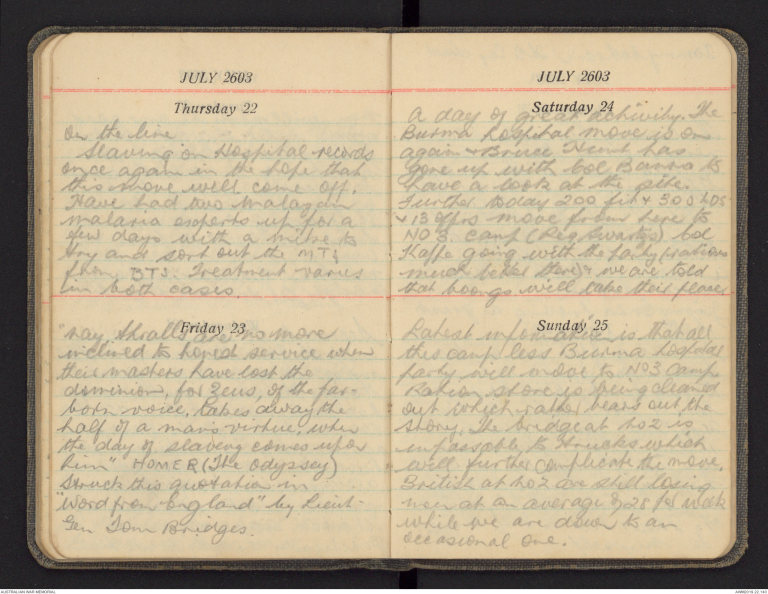 JULY 2603
Thursday 22
On the line
Slaving on Hospital records
once again in the hope that
this move will come off.
Have had two malayan
malaria experts up for a
few days with a mitre to
try and sort out the MTs
from BTs. Treatment varies
in both cases.
Friday 23
"nay, thralls are no more
inclined to honest service when
their masters have lost the
dominion, for Zeus, of the far-
born voice, takes away the
half of a man's virtue, when
the day of slavery comes upon
him" HOMER (The Odyssey)
Struck this quotation in
"Word from England" by Lieut-
Gen Tom Bridges.
JULY 2603
Saturday 24
A day of great activity. The
Burma hospital move is on
again & Bruce Hunt has
gone up with Col Banno to
have a look at the site.
Further today 200 fit & 300 hos
& 13 offrs move from here to
NO 3 camp (Reg Swartz) Col
Kaffe going with the party (rations
much better there) & we are told
that boongs will take their places
Sunday 25
Latest information is that all
this camp less Burma hospital
party will move to NO3 Camp
Ration store is being cleaned
out which rather bears out the
story. The bridge at ho2 is
impassable to trucks which
will further complicate the move.
British at ho2 are still losing
men at an average of 28 per week
while we are down to an
occasional one.
AUSTRALIAN WAR MEMORIAL